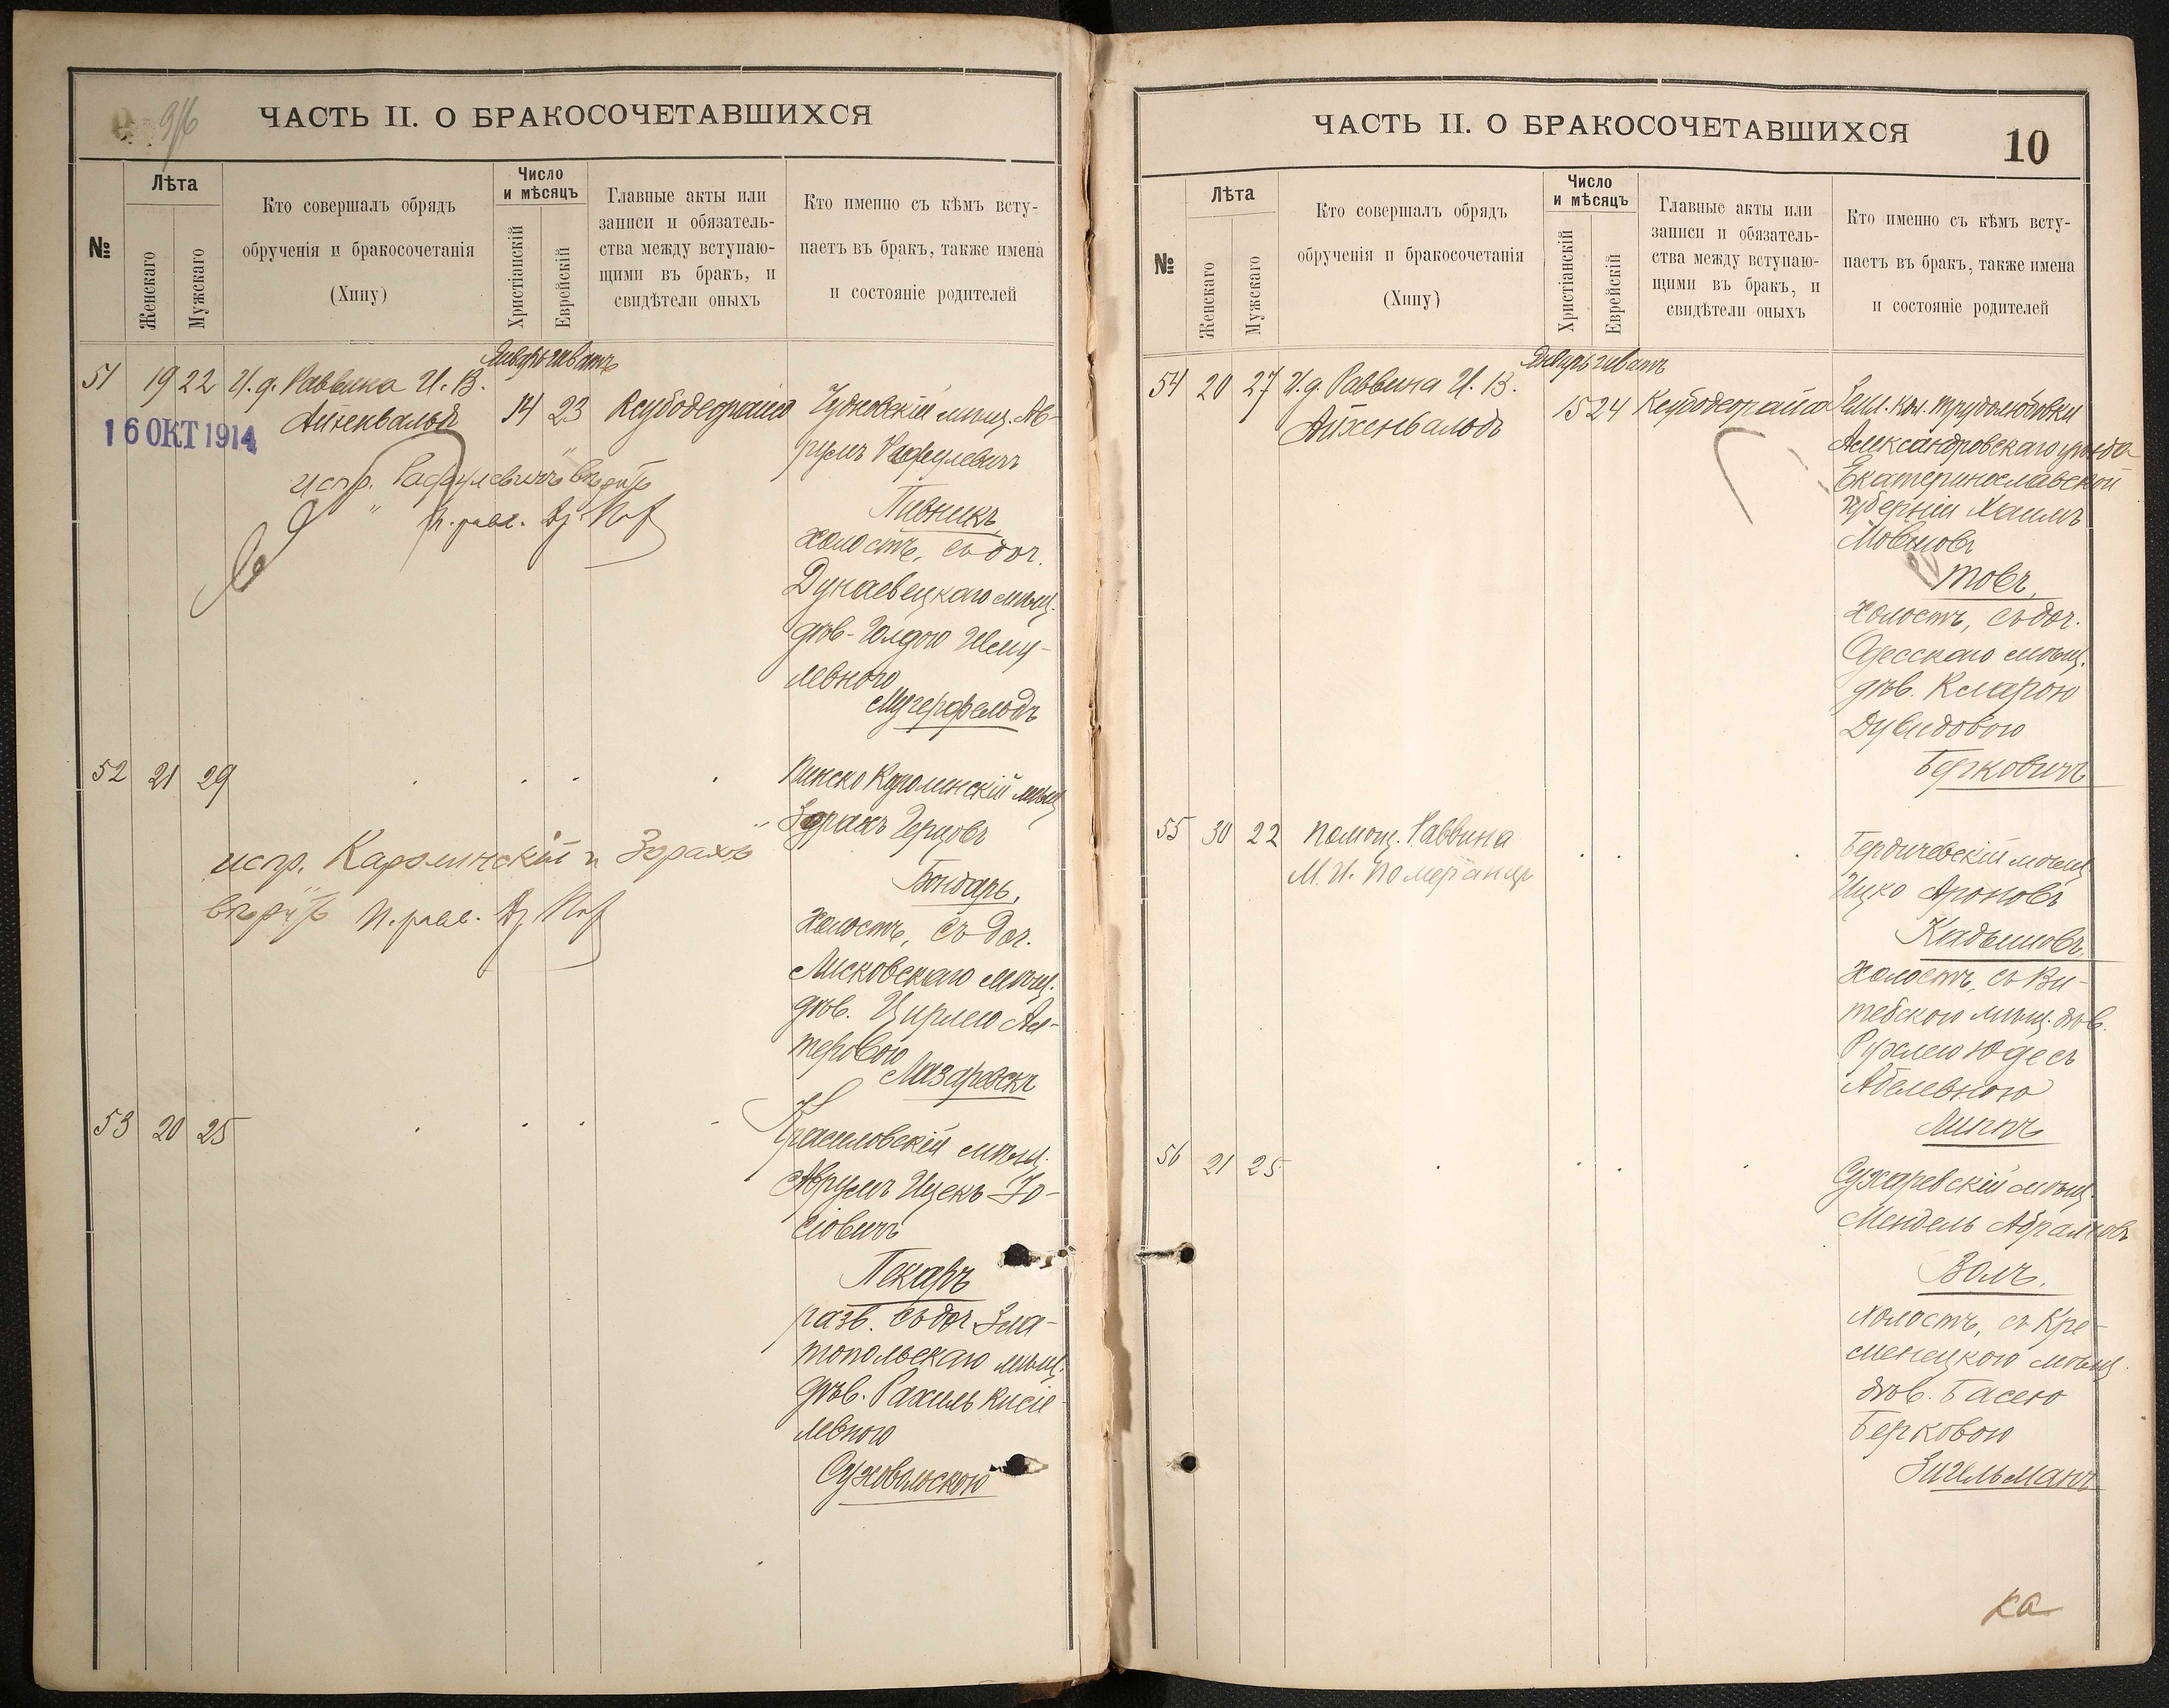 9/6
ЧАСТЬ II. О БРАКОСОЧЕТАВШИХСЯ
№
Лѣта
Женскаго
Мужскаго
Кто совершалъ обрядъ
обрученія и бракосочетанія
(Хипу)
Число
и мѣсяцъ
Христіанскій
Еврейскій
Главные акты или
записи и обязатель-
ства между вступаю-
щими въ бракъ, и
свидѣтели оныхъ
Кто именно съ кѣмъ всту-
паетъ въ бракъ, также имена
и состояніе родителей
Январь шватъ
51 19 22 И.д. Раввина И. В.
Айхенвальдъ 14 23 Ксубодеорайсо
16 ОКТ 1914
Чудновскій мѣщ. Ав-
румъ Рафулевичъ
испр. "Рафулевичъ" вѣрно
Пивникъ,
холостъ, съ доч.
Дунаевецкаго мѣщ.
дѣв. Голдою Шму-
левною
Мугерфельдъ
52 21 29
Пинско Каролинскій мѣщ.
Зорахъ Герцовъ
испр. Каролинскій и Зорахъ
вѣрно
Бондарь,
холостъ, съ доч.
Лисковскаго мѣщ.
дѣв. Цирлею Ал-
теровою
Лазаревскъ
53 20 25
Красиловскій мѣщ.
Аврумъ Ицекъ Іо-
сіовичъ
Пекаръ
разв. съ доч. Зла-
топольскаго мѣщ.
дѣв. Рахиль Кисіе-
левною
Суховольскою
ЧАСТЬ II. О БРАКОСОЧЕТАВШИХСЯ
10
№
Лѣта
Женскаго
Мужскаго
Кто совершалъ обрядъ
обрученія и бракосочетанія
(Хипу)
Число
и мѣсяцъ
Христіанскій
Еврейскій
Главные акты или
записи и обязатель-
ства между вступаю-
щими въ бракъ, и
свидѣтели оныхъ
Кто именно съ кѣмъ всту-
паетъ въ бракъ, также имена
и состояніе родителей
Январь шватъ
54 20 27 И.д. Раввина И. В.
Айхенвальдъ
15 24 Ксубодеорайсо
кол. Трудолюбовки
Александровскаго уѣзда
Екатеринославской
губерніи Хаимъ
Мовшовъ
Товъ,
холостъ, съ доч.
Одесскаго мѣщ.
дѣв. Кларою
Дувидовою
Берковичъ
55 30 22 Помощ. Раввина
М. И. Померанцъ
Бердичевскій мѣщ.
Ицко Ароновъ
Кадышовъ,
холостъ, съ Ви-
тебскою мѣщ. дѣв.
Рухлею Юдесъ
Абелевною
Липпъ
56 21 25
Сухаревскій мѣщ.
Мендель Абрамовъ
Волъ.
холостъ, съ Кре-
менецкою мѣщ.
дѣв. Басею
Берковою
Зигельманъ
ка